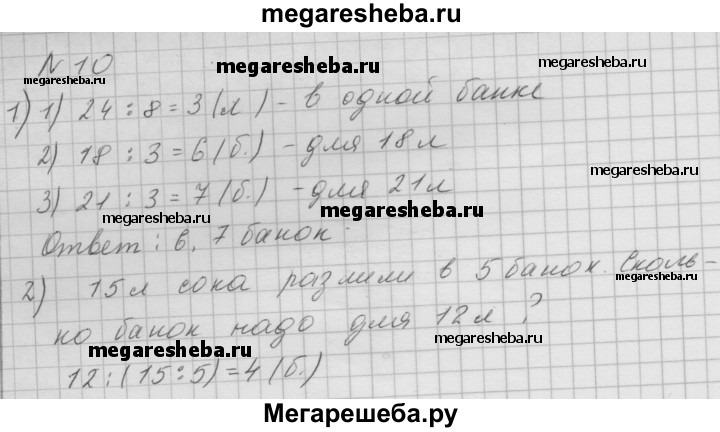 megaresheba.ru
№ 10
megaresheba.ru
megaresheba.ru
megaresheba.ru
1) 1) 24 : 8 = 3 (л) - в одной банке
2) 18 : 3 = 6 (б.) - для 18 л
megaresheba.ru
3) 21 : 3 = 7 (б.) - для 21 л
megaresheba.ru
megaresheba.ru
Ответ: 6, 7 банок
2) 15 л сока разлили в 5 банок. Сколь-
megaresheba.ru
ко банок надо для 12 л ?
megaresheba.ru
megaresheba.ru
12 : (15 : 5) = 4 (б.)
Мегарешеба.ру